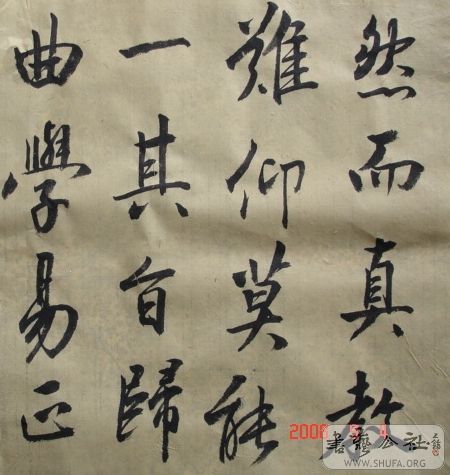 然而真教
難仰莫能
一其旨歸
曲學易正
書藝公社
WWW.SHUFA.ORG